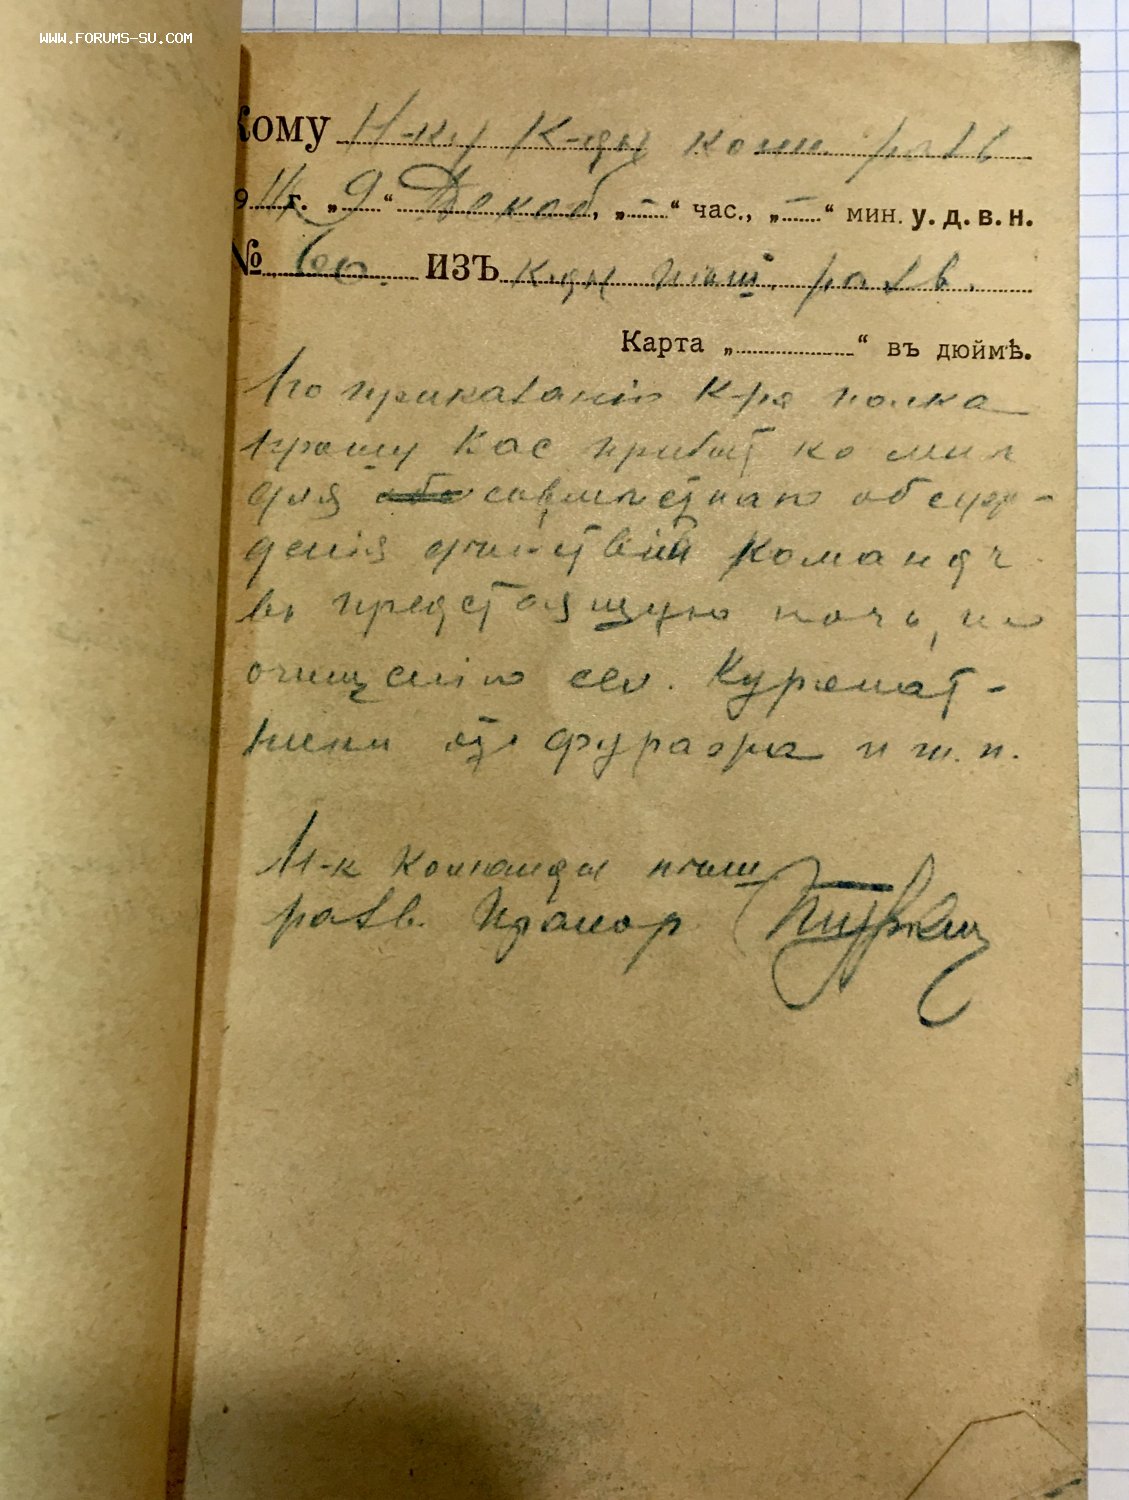 WWW.FORUMS-SU.COM
Кому Н-ку К-ды конн. разв
9 г. „9“ Декаб, „—“ час., „—“ мин. у. д. в. н.
№ 60. ИЗЪ к-ды пѣш. разв.
Карта „ “ въ дюймѣ.
По приказанію К-ра полка
прошу Вас прибыть ко мнѣ
для совмѣстнаго обсуж-
денія дѣйствій команды
въ предстоящую ночь, по
очищенію сел.
отъ фуража и т. п.
Н-к команды пѣш.
разв. Прапор